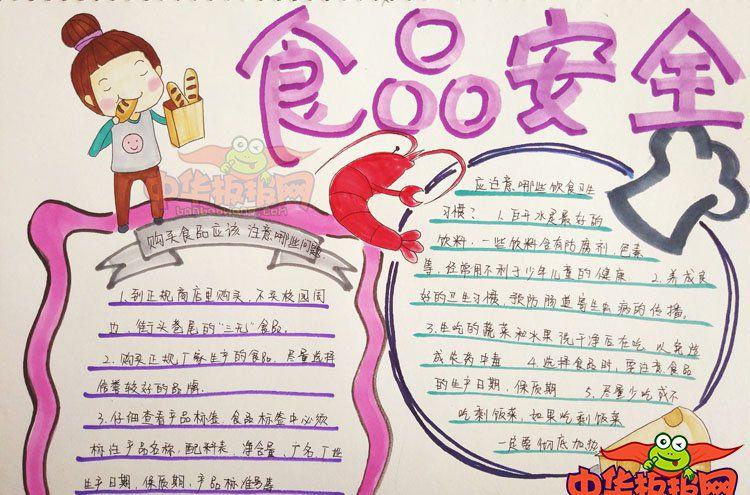 食品安全
中华板报网
购买食品应该注意哪些问题
1.到正规商店里购买，不买校园周
边、街头巷尾的"三无"食品。
2.购买正规厂家生产的食品，尽量选择
信誉较好的品牌。
3.仔细查看产品标签。食品标签中必须
标注产品名称、配料表、净含量、厂名、厂址
生产日期、保质期、产品标准号等
应注意哪些饮食卫生
习惯？ 1.白开水是最好的
饮料，一些饮料含有防腐剂、色素
等，经常用不利于少年儿童的健康 2.养成良
好的卫生习惯，预防肠道寄生虫病的传播。
3.生吃的蔬菜和水果洗干净后在吃，以免造
成农药中毒 4.选择食品时，要注意食品
的生产日期、保质期 5.尽量少吃或不
吃剩饭菜，如果吃剩饭菜
一定要彻底加热
中华板报网